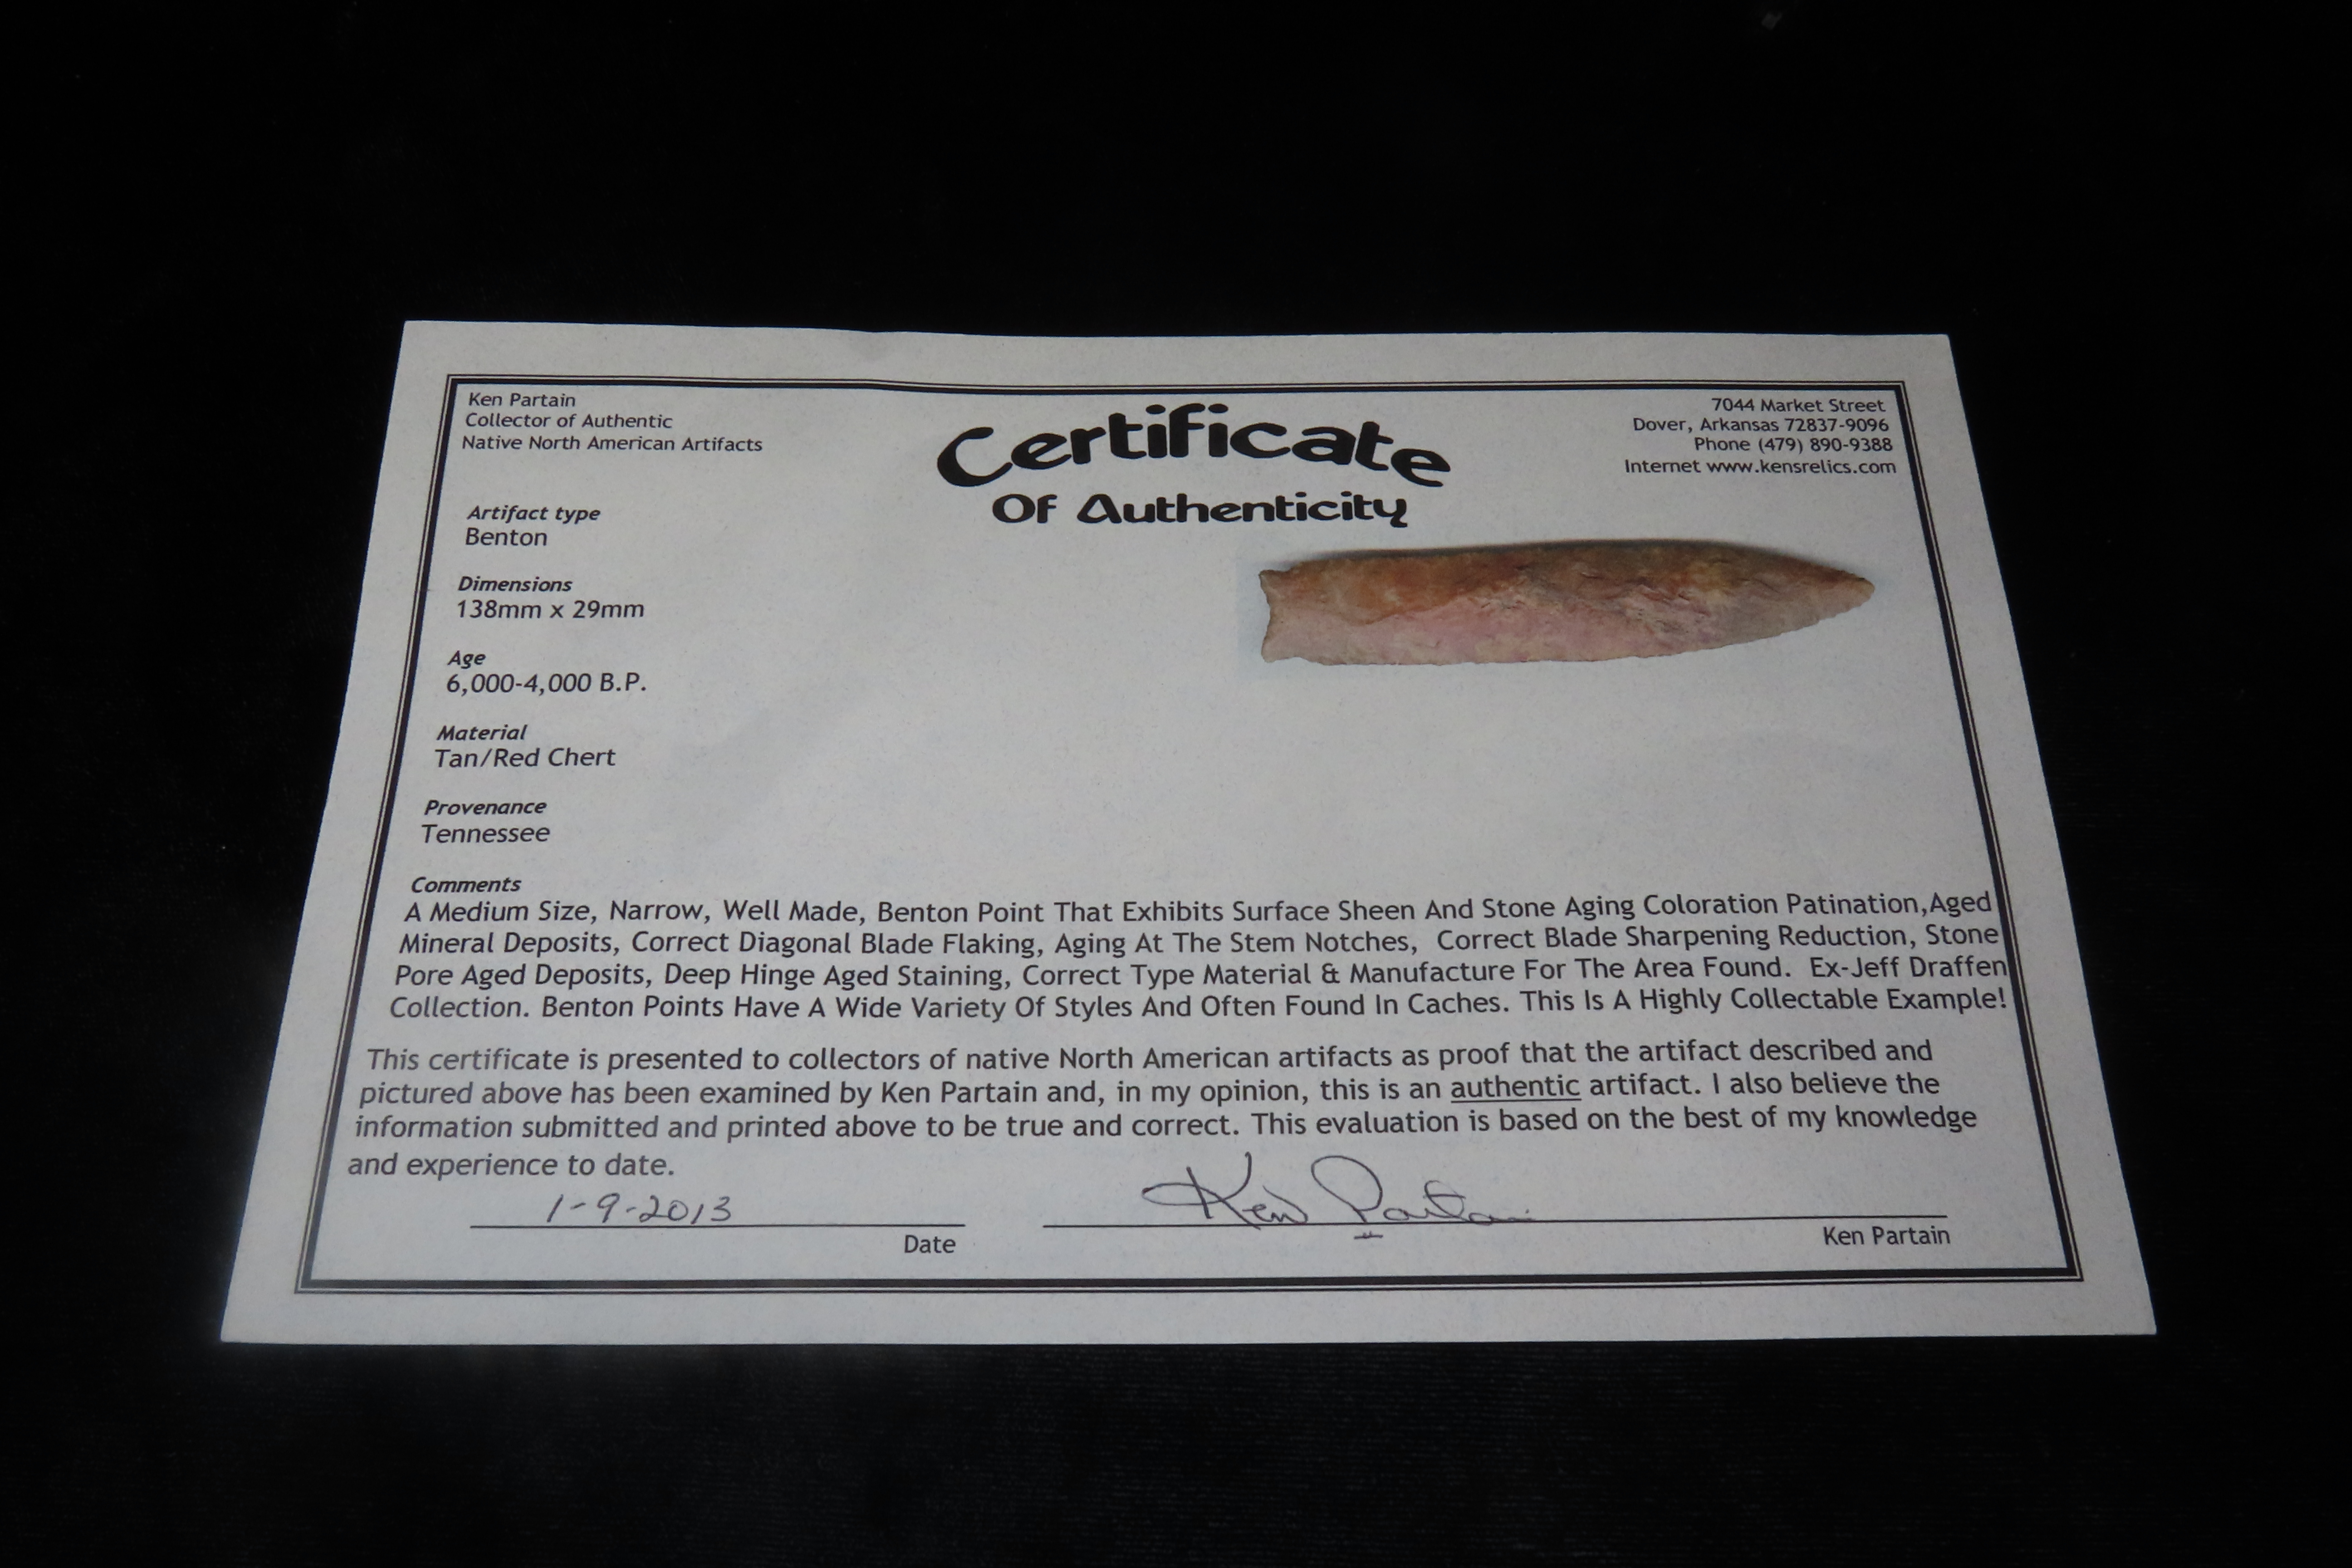 Ken Partain
Collector of Authentic
Native North American Artifacts
Certificate
Of Authenticity
7044 Market Street
Dover, Arkansas 72837-9096
Phone (479) 890-9388
Internet www.kensrelics.com
Artifact type
Benton
Dimensions
138mm x 29mm
Age
6,000-4,000 B.P.
Material
Tan/Red Chert
Provenance
Tennessee
Comments
A Medium Size, Narrow, Well Made, Benton Point That Exhibits Surface Sheen And Stone Aging Coloration Patination,Aged
Mineral Deposits, Correct Diagonal Blade Flaking, Aging At The Stem Notches, Correct Blade Sharpening Reduction, Stone
Pore Aged Deposits, Deep Hinge Aged Staining, Correct Type Material & Manufacture For The Area Found. Ex-Jeff Draffen
Collection. Benton Points Have A Wide Variety Of Styles And Often Found In Caches. This Is A Highly Collectable Example!
This certificate is presented to collectors of native North American artifacts as proof that the artifact described and
pictured above has been examined by Ken Partain and, in my opinion, this is an authentic artifact. I also believe the
information submitted and printed above to be true and correct. This evaluation is based on the best of my knowledge
and experience to date.
1-9-2013
Ken Partain
Date
Ken Partain